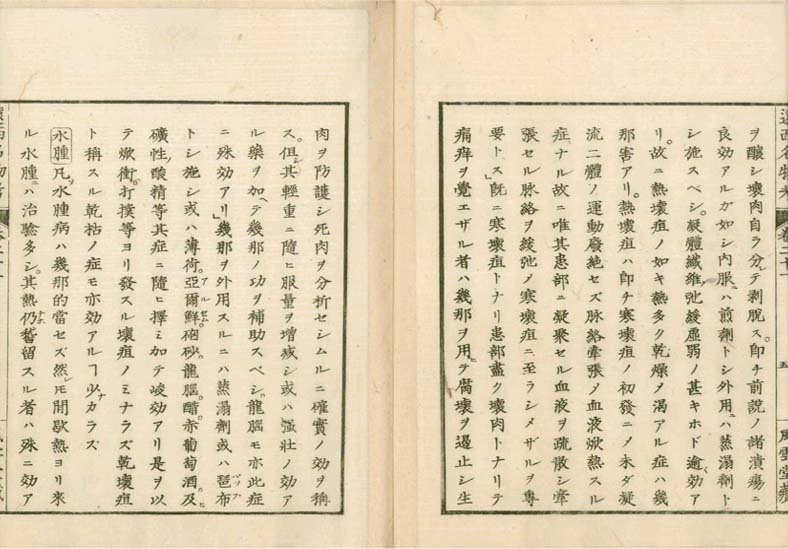 遠西名物考
卷二十一
五
風雲堂藏
ヲ釀シ壞肉自ラ分シテ剥脫ス。卽チ前說ノ諸潰瘍ニ
良効アルガ如シ内服ニハ煎劑トシ外用ニハ蒸溻劑ト
シ施スベシ。凝體纖維弛緩虛弱ノ甚キホド逾効ア
リ。故ニ熱壞疽ノ如キ熱多ク乾燥メ渴アル症ハ幾
那害アリ。熱壞疽ハ卽チ寒壞疽ノ初發ニメ未ダ凝
流二體ノ運動廢絕セズ脉絡牽張メ血液焮熱スル
症ナル故ニ唯其患部ニ凝聚セル血液ヲ疏散シ牽
張セル脉絡ヲ緩弛メ寒壞疽ニ至ラシメザルヲ專
要トス。既ニ寒壞疽トナリ患部盡ク壞肉トナリテ
痛痒ヲ覺エザル者ハ幾那ヲ用テ腐壞ヲ遏止シ生
肉ヲ防護シ死肉ヲ分析セシムルニ確實ノ効ヲ稱
ス。但シ其輕重ニ隨ヒ服量ヲ增減シ或ハ强壯ノ効ア
ル藥ヲ加ヘテ幾那ノ功ヲ補助スベシ。龍腦モ亦此症
ニ殊効アリ幾那ヲ外用スルニハ蒸溻劑或ハ琶布
トシ施シ或ハ薄荷。亞爾鮮。硇砂。龍腦。醋。赤葡萄酒。及ヒ
礦性酸精等其症ニ隨ヒ擇ミ加テ峻効アリ是ヲ以
テ焮衝。打撲等ヨリ發スル壞疽ノミナラズ乾壞疽
ト稱スル乾枯ノ症モ亦効アルヿ少カラズ
水腫 凡ソ水腫病ハ幾那的當セズ然レモ間歇熱ヨリ來
ル水腫ニハ治驗多シ。其熱仍ホ稽留スル者ハ殊ニ効ア